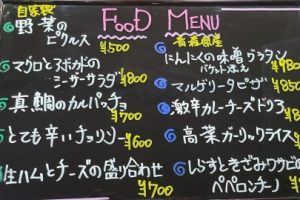 FOOD MENU
自家製
野菜の
ピクルス
¥500
マグロとアボカドの
シーザーサラダ
¥800
真鯛のカルパッチョ
¥700
とても辛いチョリソー
¥600
生ハムとチーズの盛り合わせ
¥700
青森県産
にんにくの味噌グラタン
バケット添え
¥80
マルゲリータピザ
¥85
激辛カレーチーズドリア
¥8
高菜ガーリックライス
しらすときざみワサビの
ペペロンチーノ